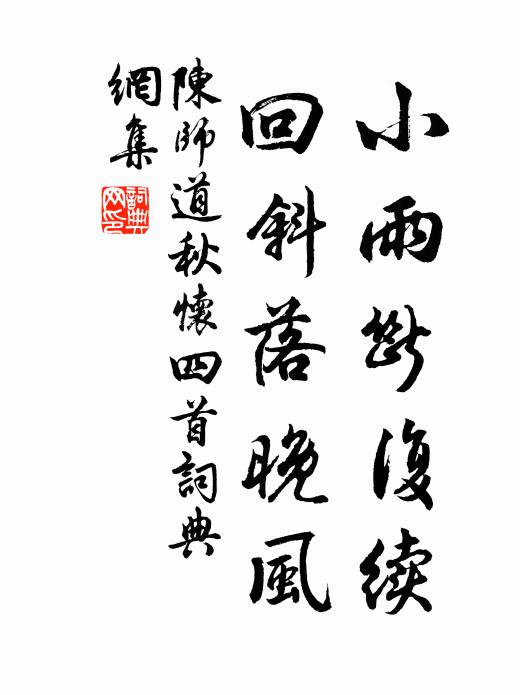 小雨斷復续
回斜落晚風
陳師道秋懷四首詞典
網集
詞典
网印